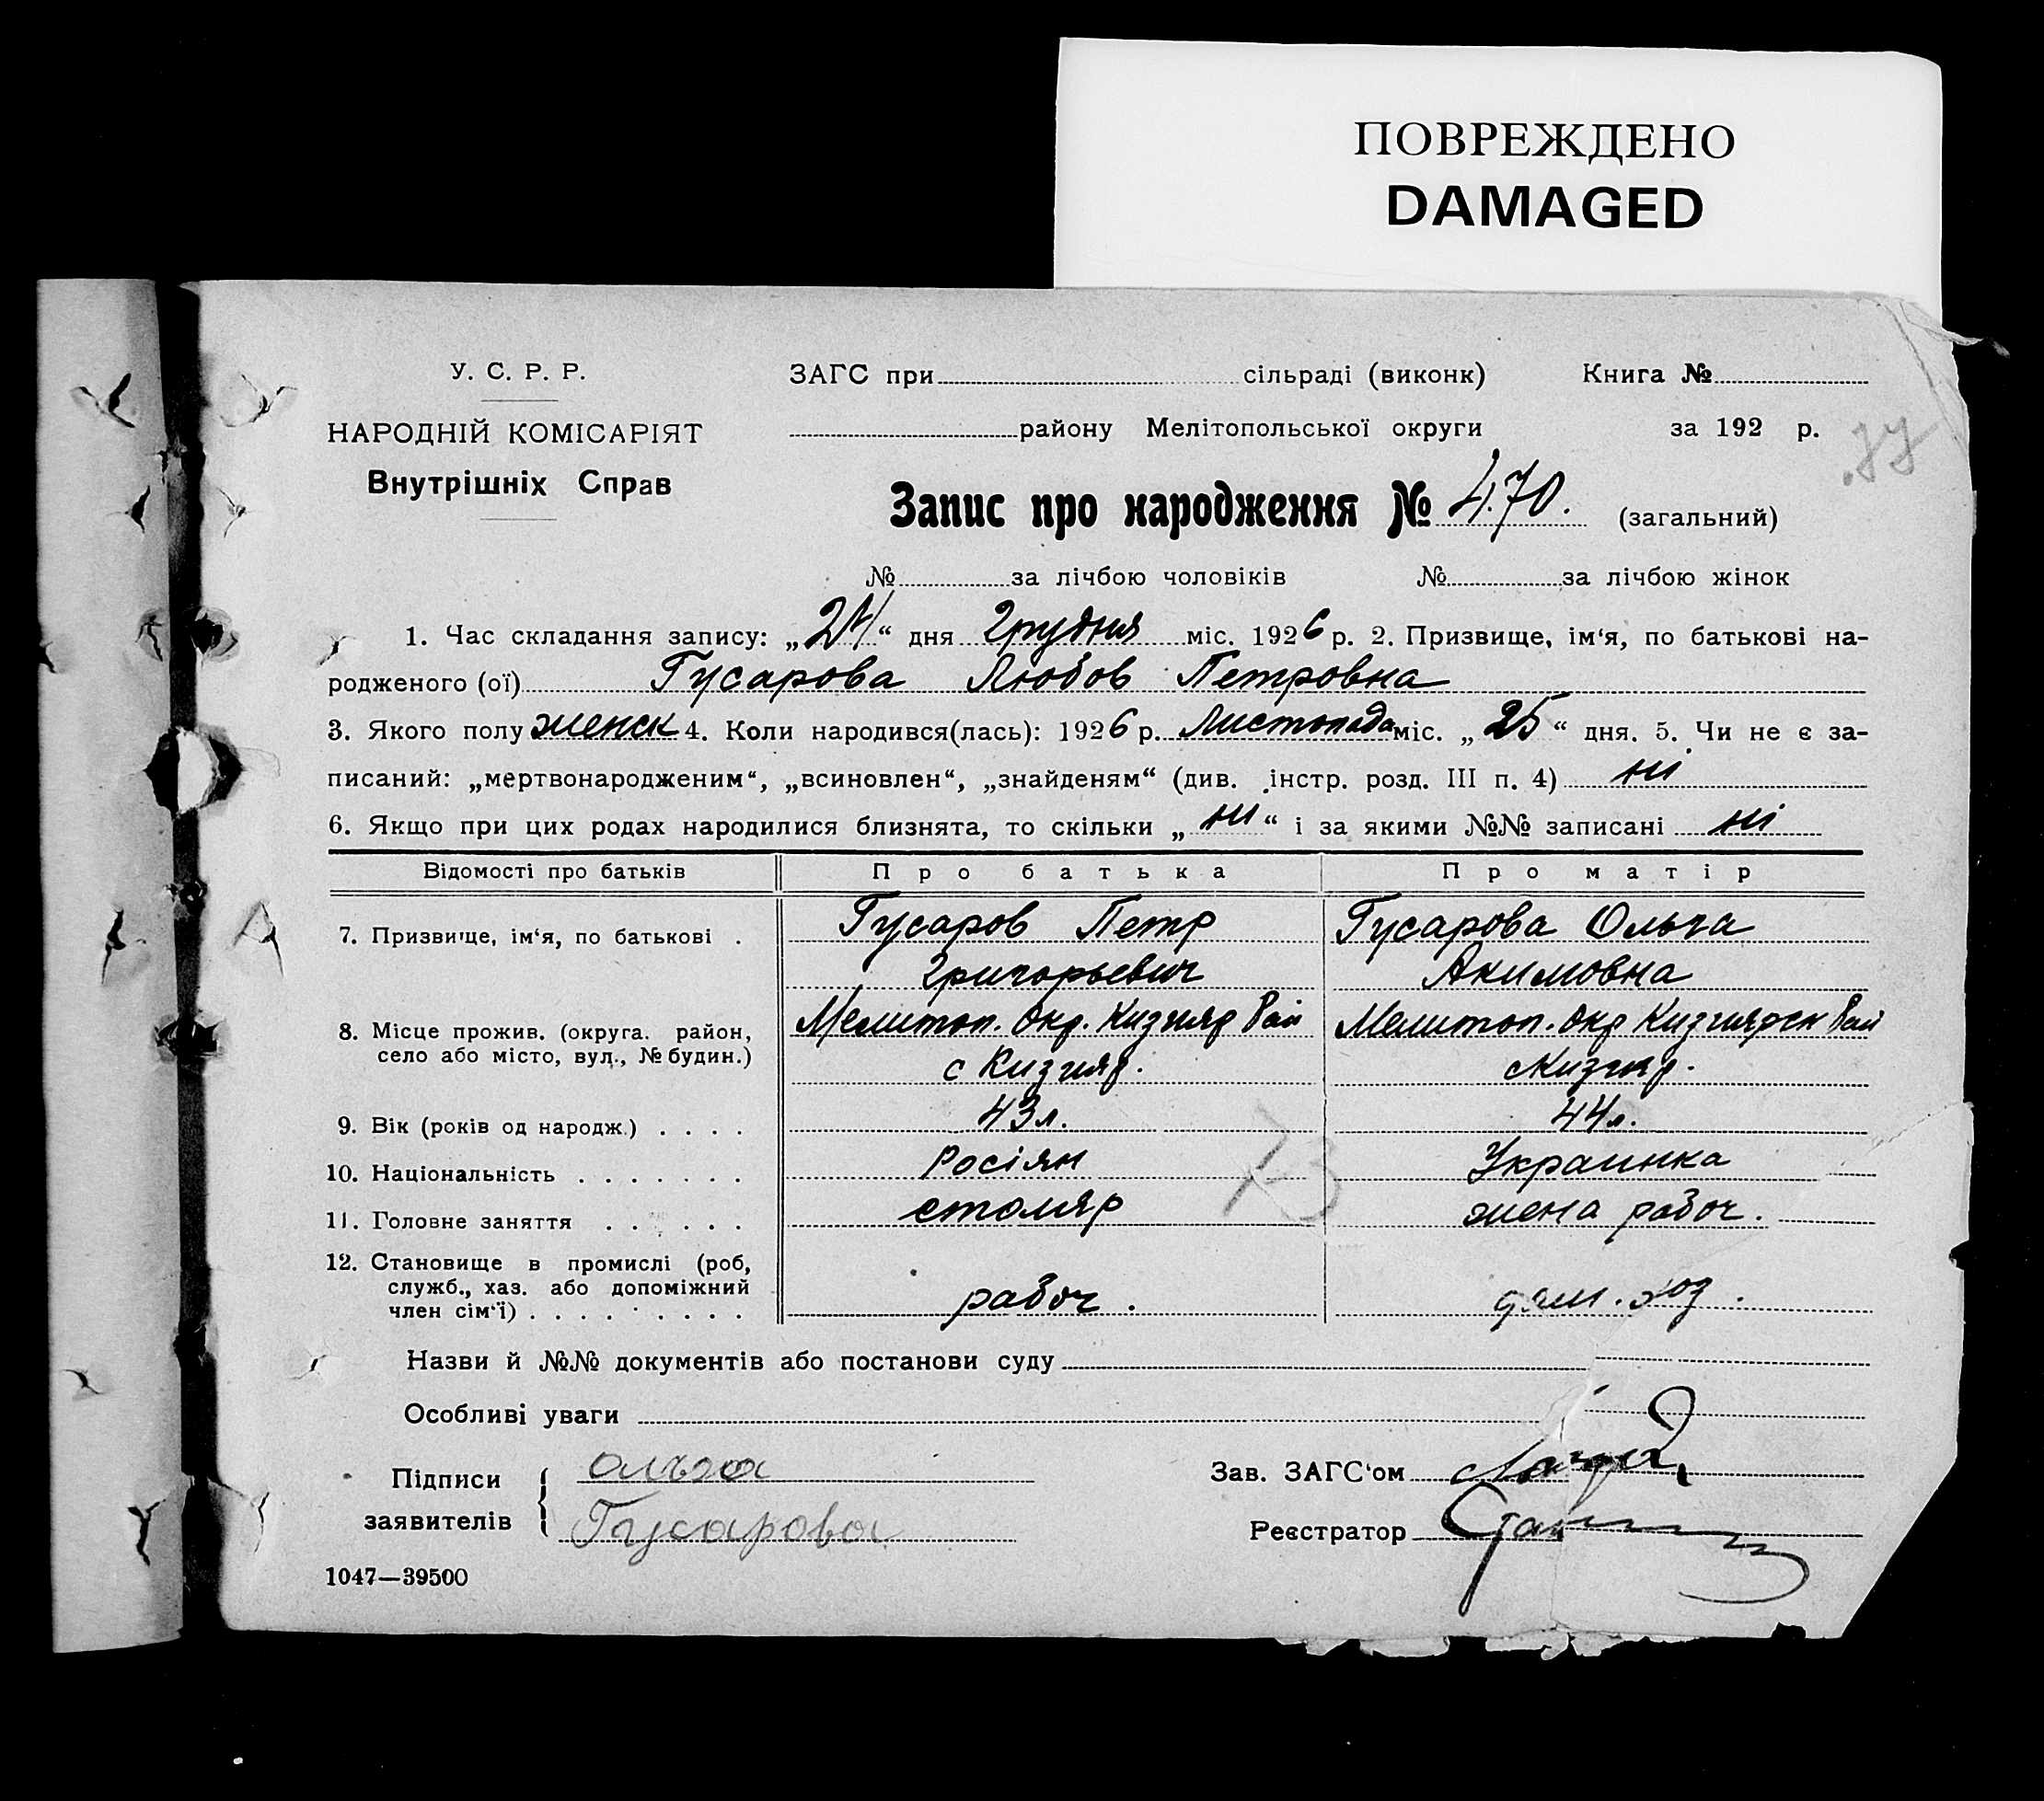 ПОВРЕЖДЕНО
DAMAGED
У. С. Р. Р.
ЗАГС при сільраді (виконк) Книга №
НАРОДНІЙ КОМІСАРІЯТ
району Мелітопольської округи за 192 р.
Внутрішніх Справ
Запис про народження № 470. (загальний)
№ за лічбою чоловіків № за лічбою жінок
1. Час складання запису: „ “ дня Грудня міс. 1926 р. 2. Призвище, ім‘я, по батькові на-
родженого (ої) Гусарова Любов Петровна
3. Якого полу женск 4. Коли народився(лась): 1926 р. Листопада міс. „25“ дня. 5. Чи не є за-
писаний: „мертвонародженим“, „всиновлен“, „знайденям“ (див. інстр. розд. III п. 4) ни
6. Якщо при цих родах народилися близнята, то скільки „ни“ і за якими №№ записані ні
Відомості про батьків Про батька Про матір
7. Призвище, ім‘я, по батькові . Гусаров Петр Гусарова Ольга
Григорьевич Акимовна
8. Місце прожив. (округа. район, Мелитоп. Окр. Кизияр Рай Мелитоп. Окр Кизиярск Рай
село або місто, вул., № будин.) с Кизияр. с Кизияр.
9. Вік (років од народж.) . . . . 43 л. 44 л.
10. Національність . . . . . . . Росіян Украинка
11. Головне заняття . . . . . . столяр жена рабоч.
12. Становище в промислі (роб,
служб., хаз. або допоміжний
член сім‘ї) . . . . . . . . рабоч. дом. хоз.
Назви й №№ документів або постанови суду
Особливі уваги
Підписи Ольга Зав. ЗАГС‘ом
заявителів Гусарова Реєстратор
1047—39500